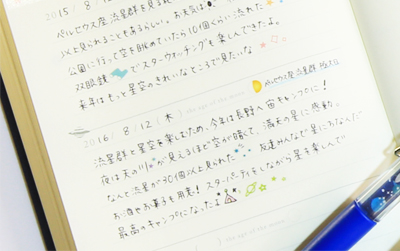 2015/8/
ペルセウス座流星群を見る
以上見られることもあるらしい。お天気は
公園に行って空を眺めていたら10個くらい流れた
双眼鏡でスターウォッチングも楽しんできたよ。
来年はもっと星空のきれいなところで見たいな
ペルセウス座流星群
2016/8/12(木)
流星群と星空を楽しむため、今年は長野へ宙キャンプに!
夜は天の川が見えるほど空が晴れて、満天の星に感動。
なんと流星が30個以上見られた 友達みんなで星におねがい
お酒やお菓子も用意! スターパーティをしながら星を楽しんで
最高のキャンプになったよ